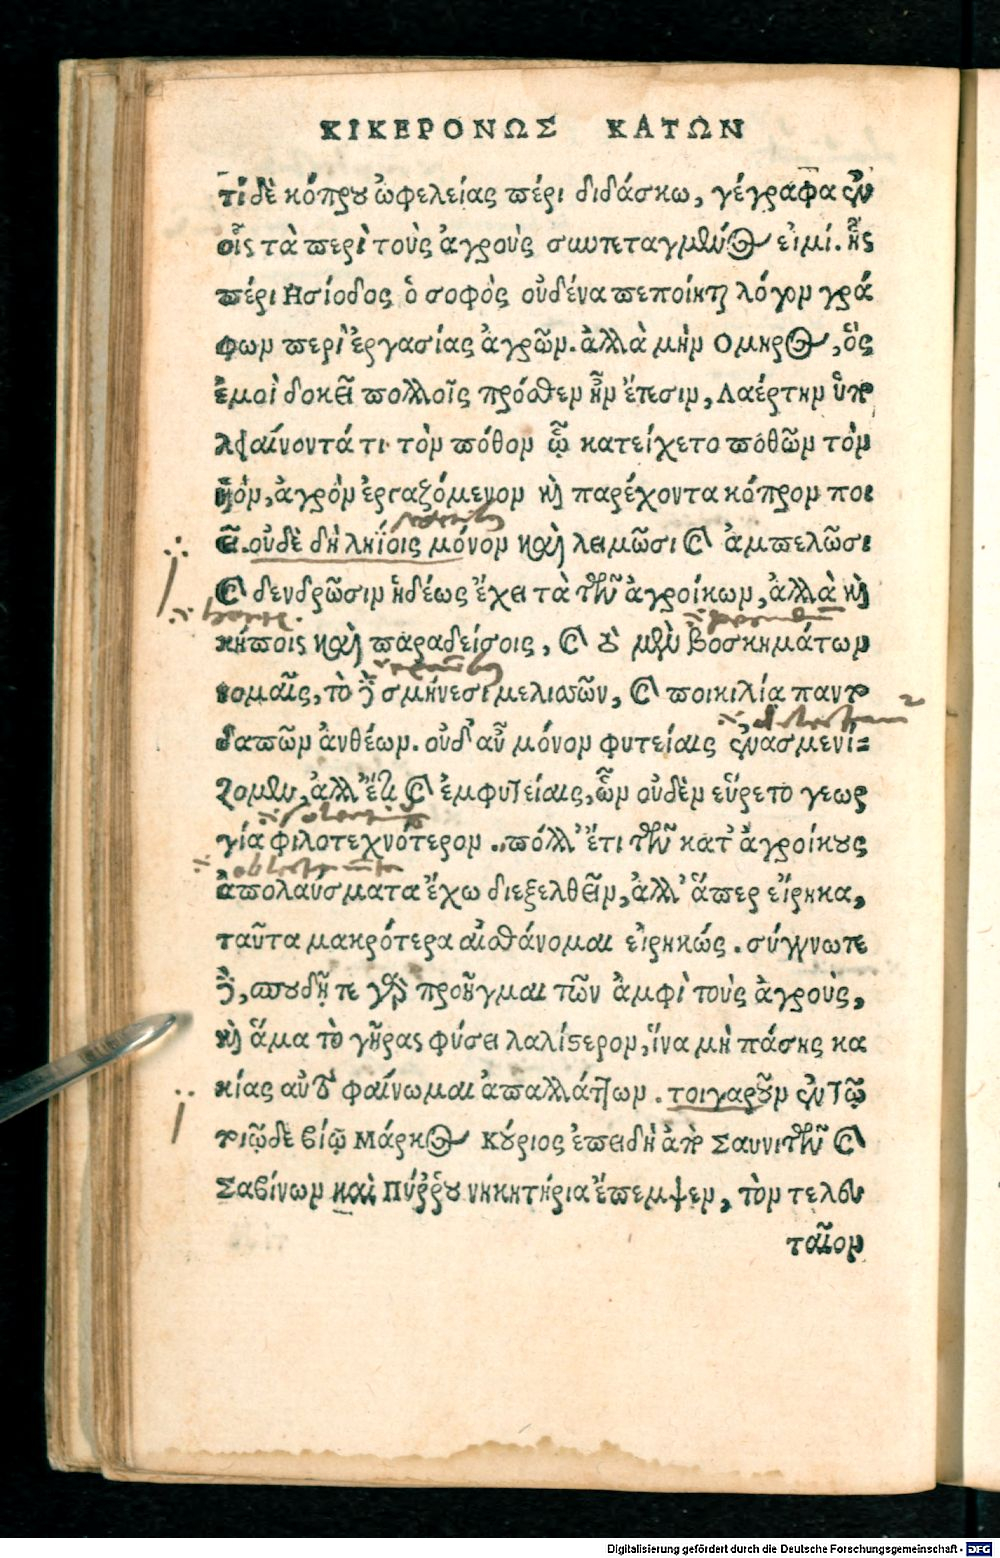 ΚΙΚΕΡΟΝΩΣ ΚΑΤΩΝ
τί δὲ κόπρου ὠφελείας πέρι διδάσκω, γέγραφα ἐν
οἷς τὰ περὶ τοὺς ἀγροὺς συντεταγμένος εἰμί. ἧς
πέρι Ησίοδος ὁ σοφὸς οὐδένα πεποίηται λόγον γρά
φων περὶ ἐργασίας ἀγρῶν. ἀλλὰ μὴν Ομηρος, ὃς
ἐμοὶ δοκεῖ πολλοῖς πρόσθεν ἦν ἔπεσιν, Λαέρτην ὑπα
λφαίνοντά τι τὸν πόθον ᾧ κατείχετο ποθῶν τὸν
ἡόν, ἀγρὸν ἐργαζόμενον καὶ παρέχοντα κόπρον ποι
εῖ. οὐδὲ δὴ ληΐοις μόνον καὶ λειμῶσι καὶ ἀμπελῶσι
καὶ δενδρῶσιν ἡδέως ἔχει τὰ τῶν ἀγροίκων, ἀλλὰ καὶ
κήποις καὶ παραδείσοις, καὶ οὐ μὲν βοσκημάτων
νομαῖς, τὸ σμήνεσι μελισσῶν, καὶ ποικιλία παντο
δαπῶν ἀνθέων. οὐδ' αὖ μόνον φυτείαις ἐνασμενί-
ζομεν, ἀλλ' ἔτι καὶ ἐμφυτείαις, ὧν οὐδὲν εὕρετο γεωρ
γία φιλοτεχνότερον. πόλλ' ἔτι τῶν κατ' ἀγροίκους
ἀπολαύσματα ἔχω διεξελθεῖν, ἀλλ' ἅπερ εἴρηκα,
ταῦτα μακρότερα αἰσθάνομαι εἰρηκώς. σύγγνωτε
σπουδῇ τε γὰρ προῆγμαι τῶν ἀμφὶ τοὺς ἀγροὺς,
καὶ ἅμα τὸ γῆρας φύσει λαλίστερον, ἵνα μὴ πάσης κα
κίας αὐτὸ φαίνωμαι ἀπαλλάττων. τοιγαροῦν ἐν τῷ
τριῷδε βίῳ Μάρκος Κύριος ἐπειδὴ ἀπὸ Σαυνιτῶν καὶ
Σαβίνων καὶ Πύῤῥου νηκητήρια ἔπεμψεν, τὸν τελευ
ταῖον
Digitalisierung gefördert durch die Deutsche Forschungsgemeinschaft - DFG